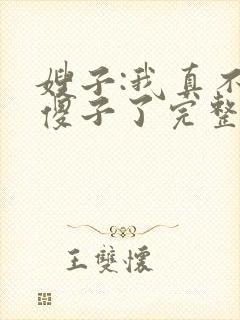 嫂子:我真不
傻子了完整
王雙懷